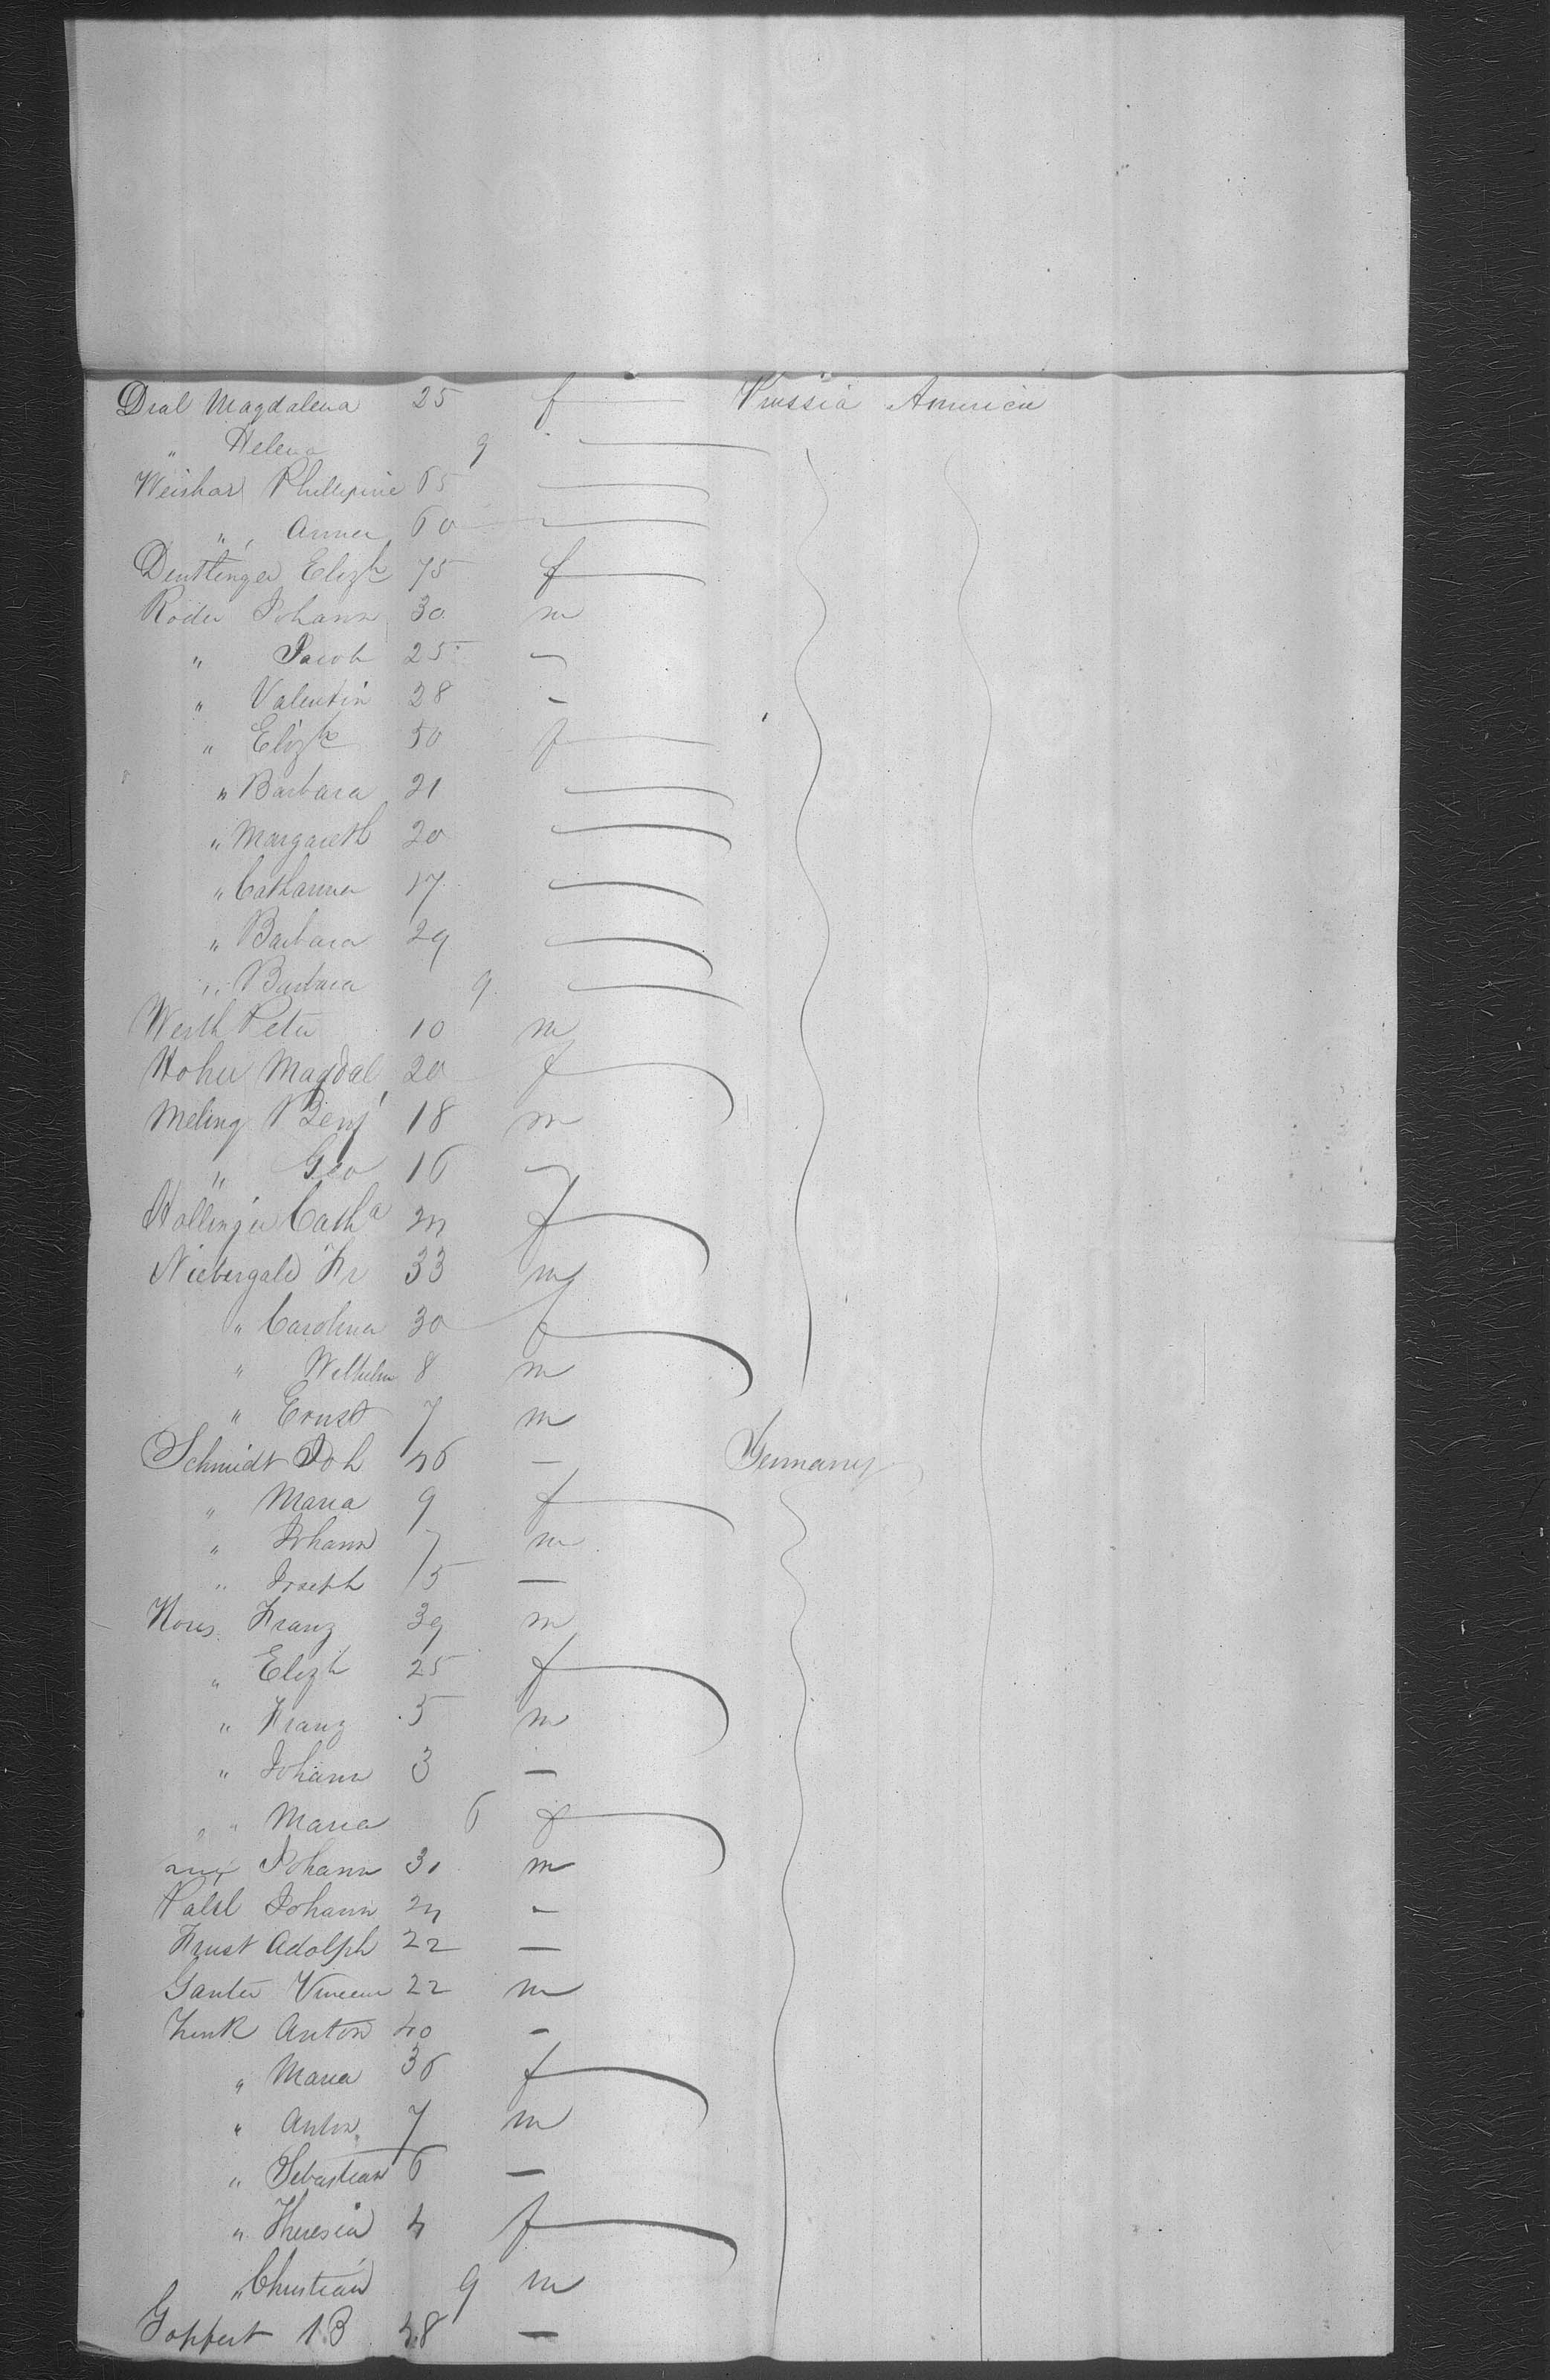 Dial Magdalena 25 f Prussia America
" Helena 9
Weishar Phillipine 65
" Anna 60
Deuttinger Elizh 75 f
Röder Johann 30 m
" Jacob 25 -
" Valentin 28 -
" Elizh 50 f
" Barbara 21
" Margareth 20
" Catharina 17
" Barbara 29
" Barbara 9
Werth Peter 10 m
Hoher Magdal 20 f
Meling Benj 18 m
" Geo 16 -
Hollinger Catha 24 f
Niebergald Fr 33 m
" Carolina 30 f
" Wilhelm 8 m
" Ernst 7 m
Schmidt Joh 46 - Germany
" Maria 9 f
" Johann 7 m
" Joseph 15 -
Franz 39 m
" Elizh 25 f
" Franz 5 m
" Johann 3 -
" Maria 6 f
Johann 31 m
Johann 24 -
Frust Adolph 22 -
Ganter 22 m
Anton 40 -
" Maria 36 f
" Anton 7 m
" Sebastian 6 -
" Theresia 4 f
" Christian 9 m
Goppert 48 -